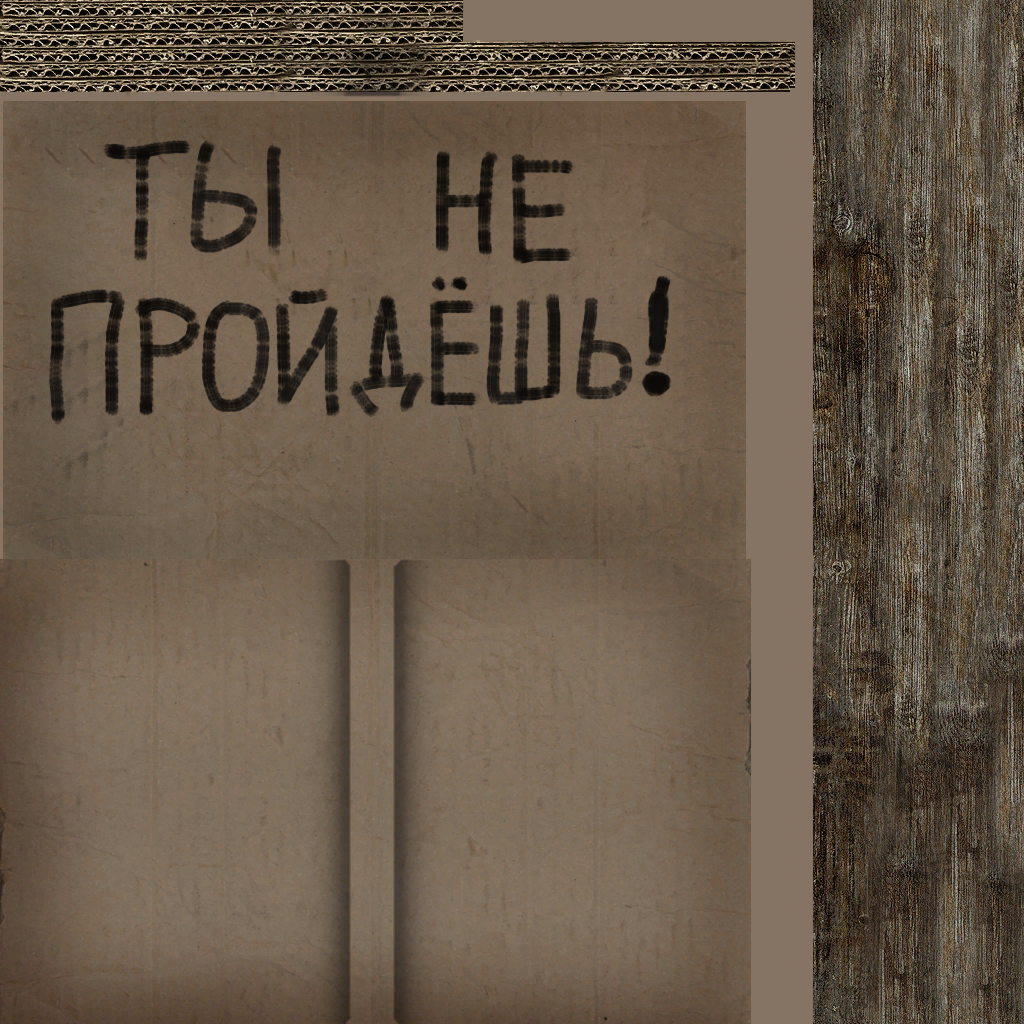 ТЫ НЕ
ПРОЙДЁШЬ!